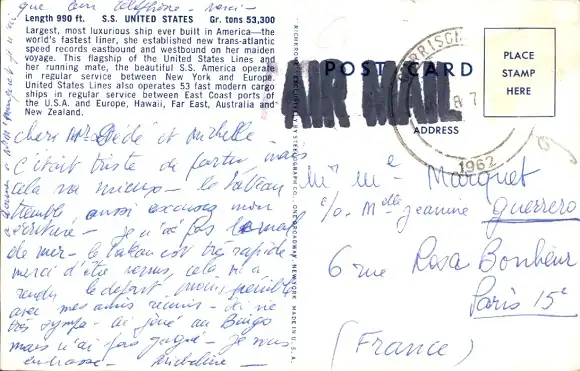 que
téléphone - merci -
Length 990 ft. S.S. UNITED STATES Gr. tons 53,300
Largest, most luxurious ship ever built in America—the
world's fastest liner, she established new trans-atlantic
speed records eastbound and westbound on her maiden
voyage. This flagship of the United States Lines and
her running mate, the beautiful S.S. America operate
in regular service between New York and Europe.
United States Lines also operates 53 fast modern cargo
ships in regular service between East Coast ports of
the U.S.A. and Europe, Hawaii, Far East, Australia and
New Zealand.
chers Dédé et Michelle -
C'était triste de partir, mais
cela va mieux - le bateau
tremble, aussi excusez mon
écriture - Je n'ai pas le mal
de mer - le bateau est très rapide
merci d'être venus, cela m'a
rendu le départ moins pénible
avec mes amis réunis -
très sympa - ai joué au Bingo
mais n'ai pas gagné - Je vous
embrasse - Micheline -
POST CARD
AIR MAIL
ADDRESS
PLACE
STAMP
HERE
1962
Marquet
c/o. Melle Jeanine Guerrero
6 rue Rosa Bonheur
Paris 15e
(France)